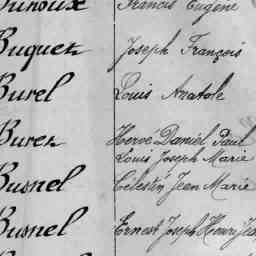 Dunoux Francis Eugène
Buquen Joseph François
Burel Louis Anatole
Buren Hervé Daniel Paul
Louis Joseph Marie
Busnel Célestin Jean Marie
Busnel Ernest Joseph Henri Jea